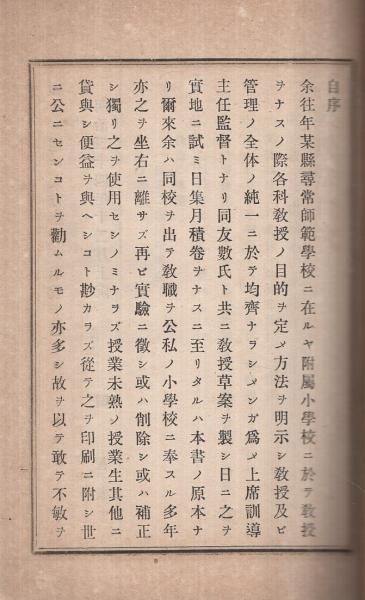 自序
余往年某縣尋常師範學校ニ在ルヤ附屬小學校ニ於テ教授
ヲナスノ際各科教授ノ目的ヲ定メ方法ヲ明示シ教授及ビ
管理ノ全体ノ純一ニ於テ均齊ナラシメンガ爲メ上席訓導
主任監督トナリ同友數氏ト共ニ教授草案ヲ製シ日ニ之ヲ
實地ニ試ミ日集月積卷ヲナスニ至リタルハ本書ノ原本ナ
リ爾來余ハ同校ヲ出テ教職ヲ公私ノ小學校ニ奉スル多年
亦之ヲ坐右ニ離サズ再ビ實驗ニ徵シ或ハ削除シ或ハ補正
シ獨リ之ヲ使用セシノミナラズ授業未熟ノ授業生其他ニ
貸與シ便益ヲ與ヘシコト尠カラズ從テ之ヲ印刷ニ附シ世
ニ公ニセンコトヲ勸ムルモノ亦多シ故ヲ以テ敢テ不敏ヲ